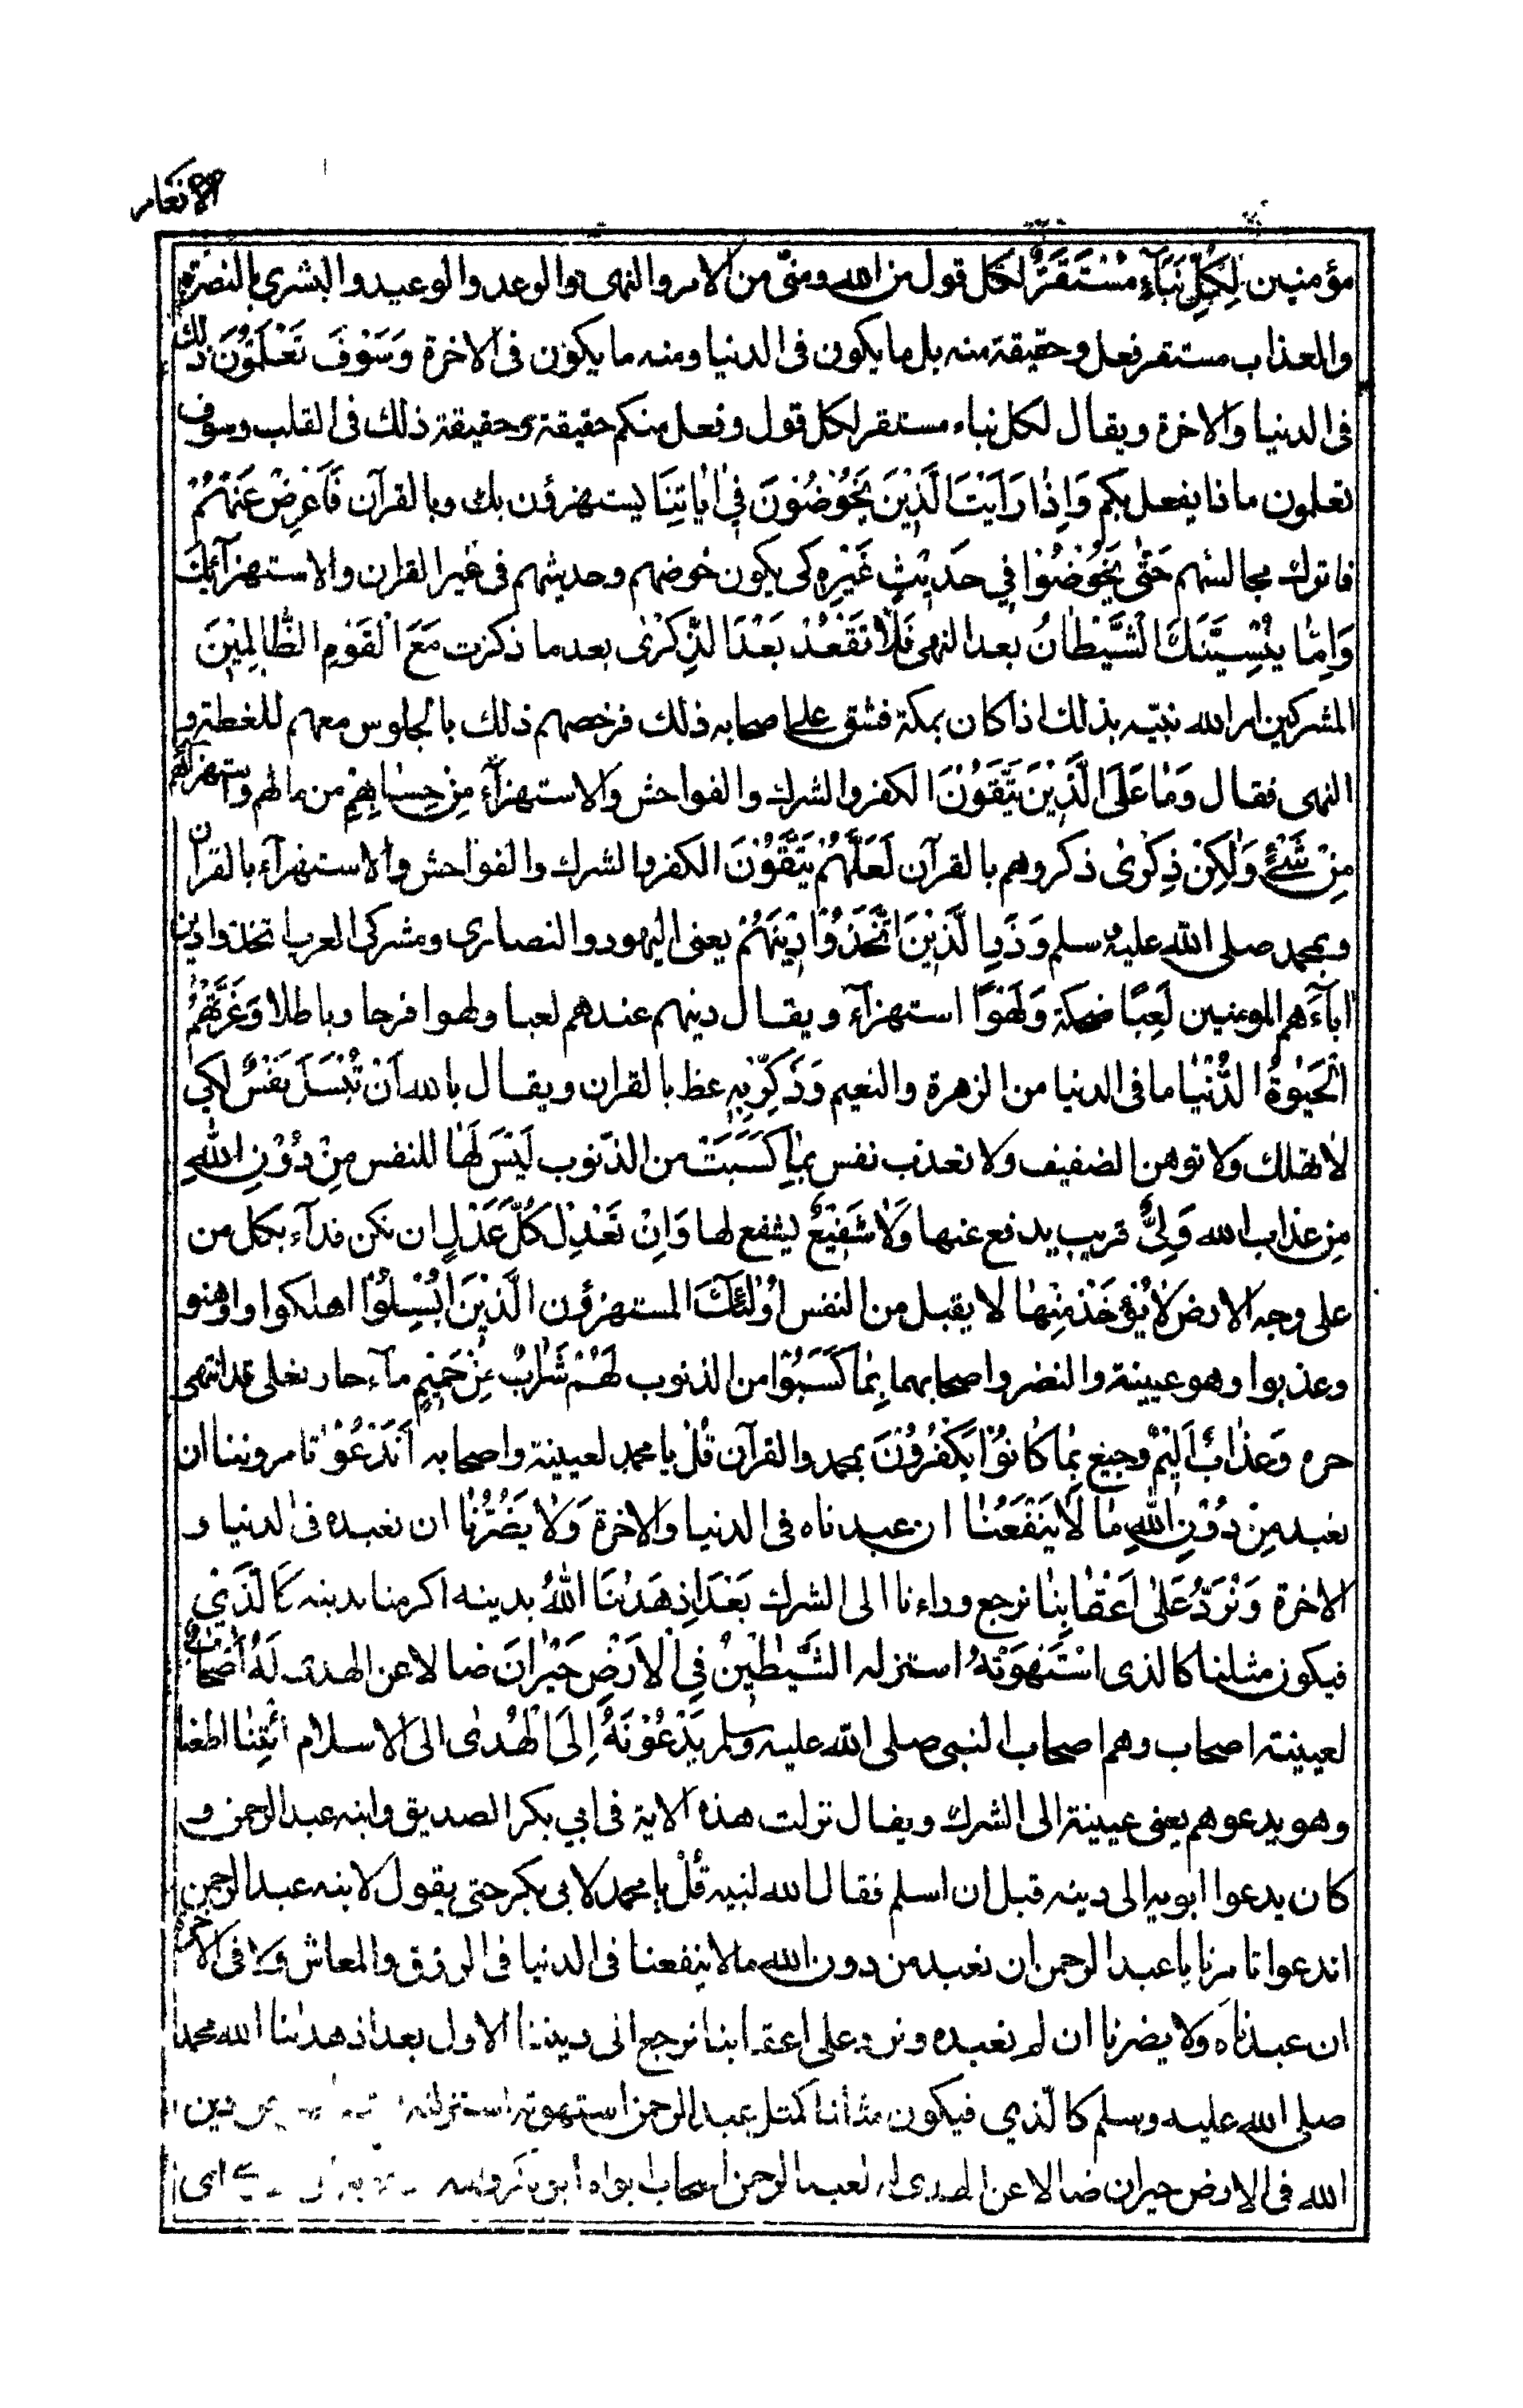 الانعام
مؤمنين لِكُلِّ نَبَاءٍ مُسْتَقَرٌّ لكل قول من الله ومنى من الامر والنهى والوعد والوعيد والبشرى بالنصرة
والعذاب مستقر فعل وحقيقة منه بل ما يكون فى الدنيا ومنه ما يكون فى الاخرة وَسَوْفَ تَعْلَمُوْنَ ذلك
فى الدنيا والاخرة ويقال لكل نباء مستقر لكل قول وفعل منكم حقيقة وحقيقة ذلك فى القلب وسوف
تعلمون ماذا يفعل بكم وَاِذَا رَاَيْتَ الَّذِيْنَ يَخُوْضُوْنَ فِىْ اٰيَاتِنَا يستهزؤن بك وبالقرآن فَاَعْرِضْ عَنْهُمْ
فاترك مجالستهم حَتّٰى يَخُوْضُوْا فِي حَدِيْثٍ غَيْرِهٖ كى يكون خوضهم وحديثهم فى غير القران والاستهزآء بك
وَاِمَّا يُنْسِيَنَّكَ الشَّيْطَانُ بعد النهى فَلَا تَقْعُدْ بَعْدَ الذِّكْرٰى بعد ما ذكرت مَعَ الْقَوْمِ الظَّالِمِيْنَ
المشركين امر الله نبيه بذلك اذ كان بمكة فشق على اصحابه ذلك فرخصهم ذلك بالجلوس معهم للغطة و
النهى فقال وَمَا عَلَى الَّذِيْنَ يَتَّقُوْنَ الكفر والشرك والفواحش والاستهزآء مِنْ حِسَابِهِمْ من مالهم واستهزائهم
مِنْ شَىْءٍ وَلٰكِنْ ذِكْرٰى ذكروهم بالقرآن لَعَلَّهُمْ يَتَّقُوْنَ الكفر والشرك والفواحش والاستهزآء بالقران
وبمحمد صلى الله عليه وسلم وَذَرِ الَّذِيْنَ اتَّخَذُوْا دِيْنَهُمْ يعنى اليهود والنصارى ومشركى العرب اتخذوا دين
ابآءهم المومنين لَعِبًا ضحكة وَلَهْوًا استهزآء ويقال دينهم عندهم لعبا ولهوا فرحا وباطلا وَغَرَّتْهُمُ
الْحَيٰوةُ الدُّنْيَا ما فى الدنيا من الزهرة والنعيم وَذَكِّرْ بِهٖ عظ بالقران ويقال بالله اَنْ تُبْسَلَ نَفْسٌ لكى
لا تهلك ولا توهن الضفيف ولا تعذب نفس بِمَا كَسَبَتْ من الذنوب لَيْسَ لَهَا للنفس مِنْ دُوْنِ اللهِ
من عذاب الله وَلِىٌّ قريب يدفع عنها وَلَا شَفِيْعٌ يشفع لها وَاِنْ تَعْدِلْ كُلَّ عَدْلٍ ان تكن فدآء بكل من
على وجه الارض لَا يُؤْخَذْ مِنْهَا لا يقبل من النفس اُولٰئِكَ المستهزؤن الَّذِيْنَ اُبْسِلُوْا اهلكوا واوهنو
وعذبوا وهو عيينة والنضر واصحابهما بِمَا كَسَبُوْا من الذنوب لَهُمْ شَرَابٌ مِنْ حَمِيْمٍ مآء حار يغلى قد انتهى
حره وَعَذَابٌ اَلِيْمٌ وجيع بِمَا كَانُوْا يَكْفُرُوْنَ بمحمد والقرآن قُلْ يا محمد لعيينة واصحابه اَنَدْعُوْا تامروننا ان
نعبد مِنْ دُوْنِ اللهِ مَا لَا يَنْفَعُنَا ان عبدناه فى الدنيا والاخرة وَلَا يَضُرُّنَا ان نعبده فى الدنيا و
الاخرة وَنُرَدُّ عَلٰى اَعْقَابِنَا نرجع وراءنا الى الشرك بَعْدَ اِذْ هَدٰنَا اللهُ بدينه اكرمنا بدينه كَالَّذِىْ
فيكون مثلنا كالذى اسْتَهْوَتْهُ استزله الشَّيٰطِيْنُ فِى الْاَرْضِ حَيْرَانَ ضالا عن الهدى لَهُ اَصْحَابٌ
لعيينة اصحاب وهم اصحاب النبى صلى الله عليه وسلم يَدْعُوْنَهُ اِلَى الْهُدٰى الى الاسلام ائْتِنَا اطعنا
وهو يدعوهم يعنى عيينة الى الشرك ويقال نزلت هذه الاية فى ابي بكر الصديق وابنه عبد الرحمن و
كان يدعوا ابويه الى دينه قبل ان اسلم فقال الله لنبيه قُلْ يا محمد لابى بكر حتى يقول لابنه عبد الرحمن
اندعوا تامرنا يا عبد الرحمن ان نعبد من دون الله ما لا ينفعنا فى الدنيا فى الرزق والمعاش ولا فى الاخرة
ان عبدناه ولا يضرنا ان لم نعبده ونرد على اعقابنا نرجع الى ديننا الاول بعد اذ هدانا الله محمد
صلى الله عليه وسلم كالّذي فيكون مثلنا كمثل عبد الرحمن استهوته استزلته دين
الله فى الارض حيران ضالا عن الهدى له لعبد الرحمن اصحاب ابواه ابو بكر